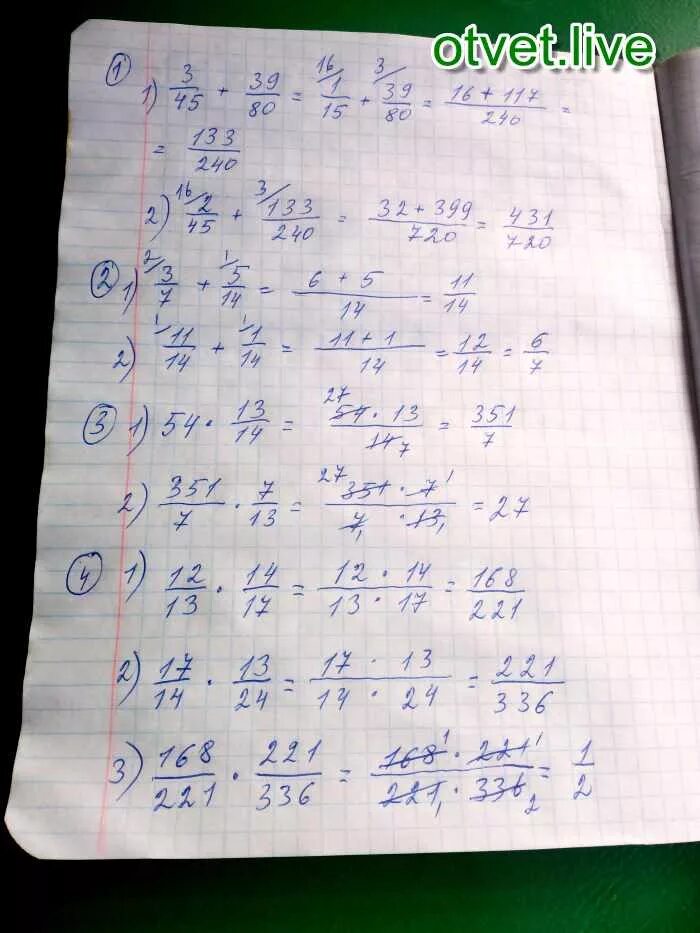 otvet.live
① 1) 3/45 + 39/80 = 16/ 1/15 + 3/ 39/80 = 16 + 117/240 =
= 133/240
2) 16/ 2/45 + 3/ 133/240 = 32 + 399/720 = 431/720
② 1) 2/ 3/7 + 1/ 5/14 = 6 + 5/14 = 11/14
2) 1/ 11/14 + 1/ 1/14 = 11 + 1/14 = 12/14 = 6/7
③ 1) 54 · 13/14 = 27 54 · 13/14 7 = 351/7
2) 351/7 · 7/13 = 27 351 · 7 1/7 1 · 13 1 = 27
④ 1) 12/13 · 14/17 = 12 · 14/13 · 17 = 168/221
2) 17/14 · 13/24 = 17 · 13/14 · 24 = 221/336
3) 168/221 · 221/336 = 168 1 · 221 1/221 1 · 336 2 = 1/2